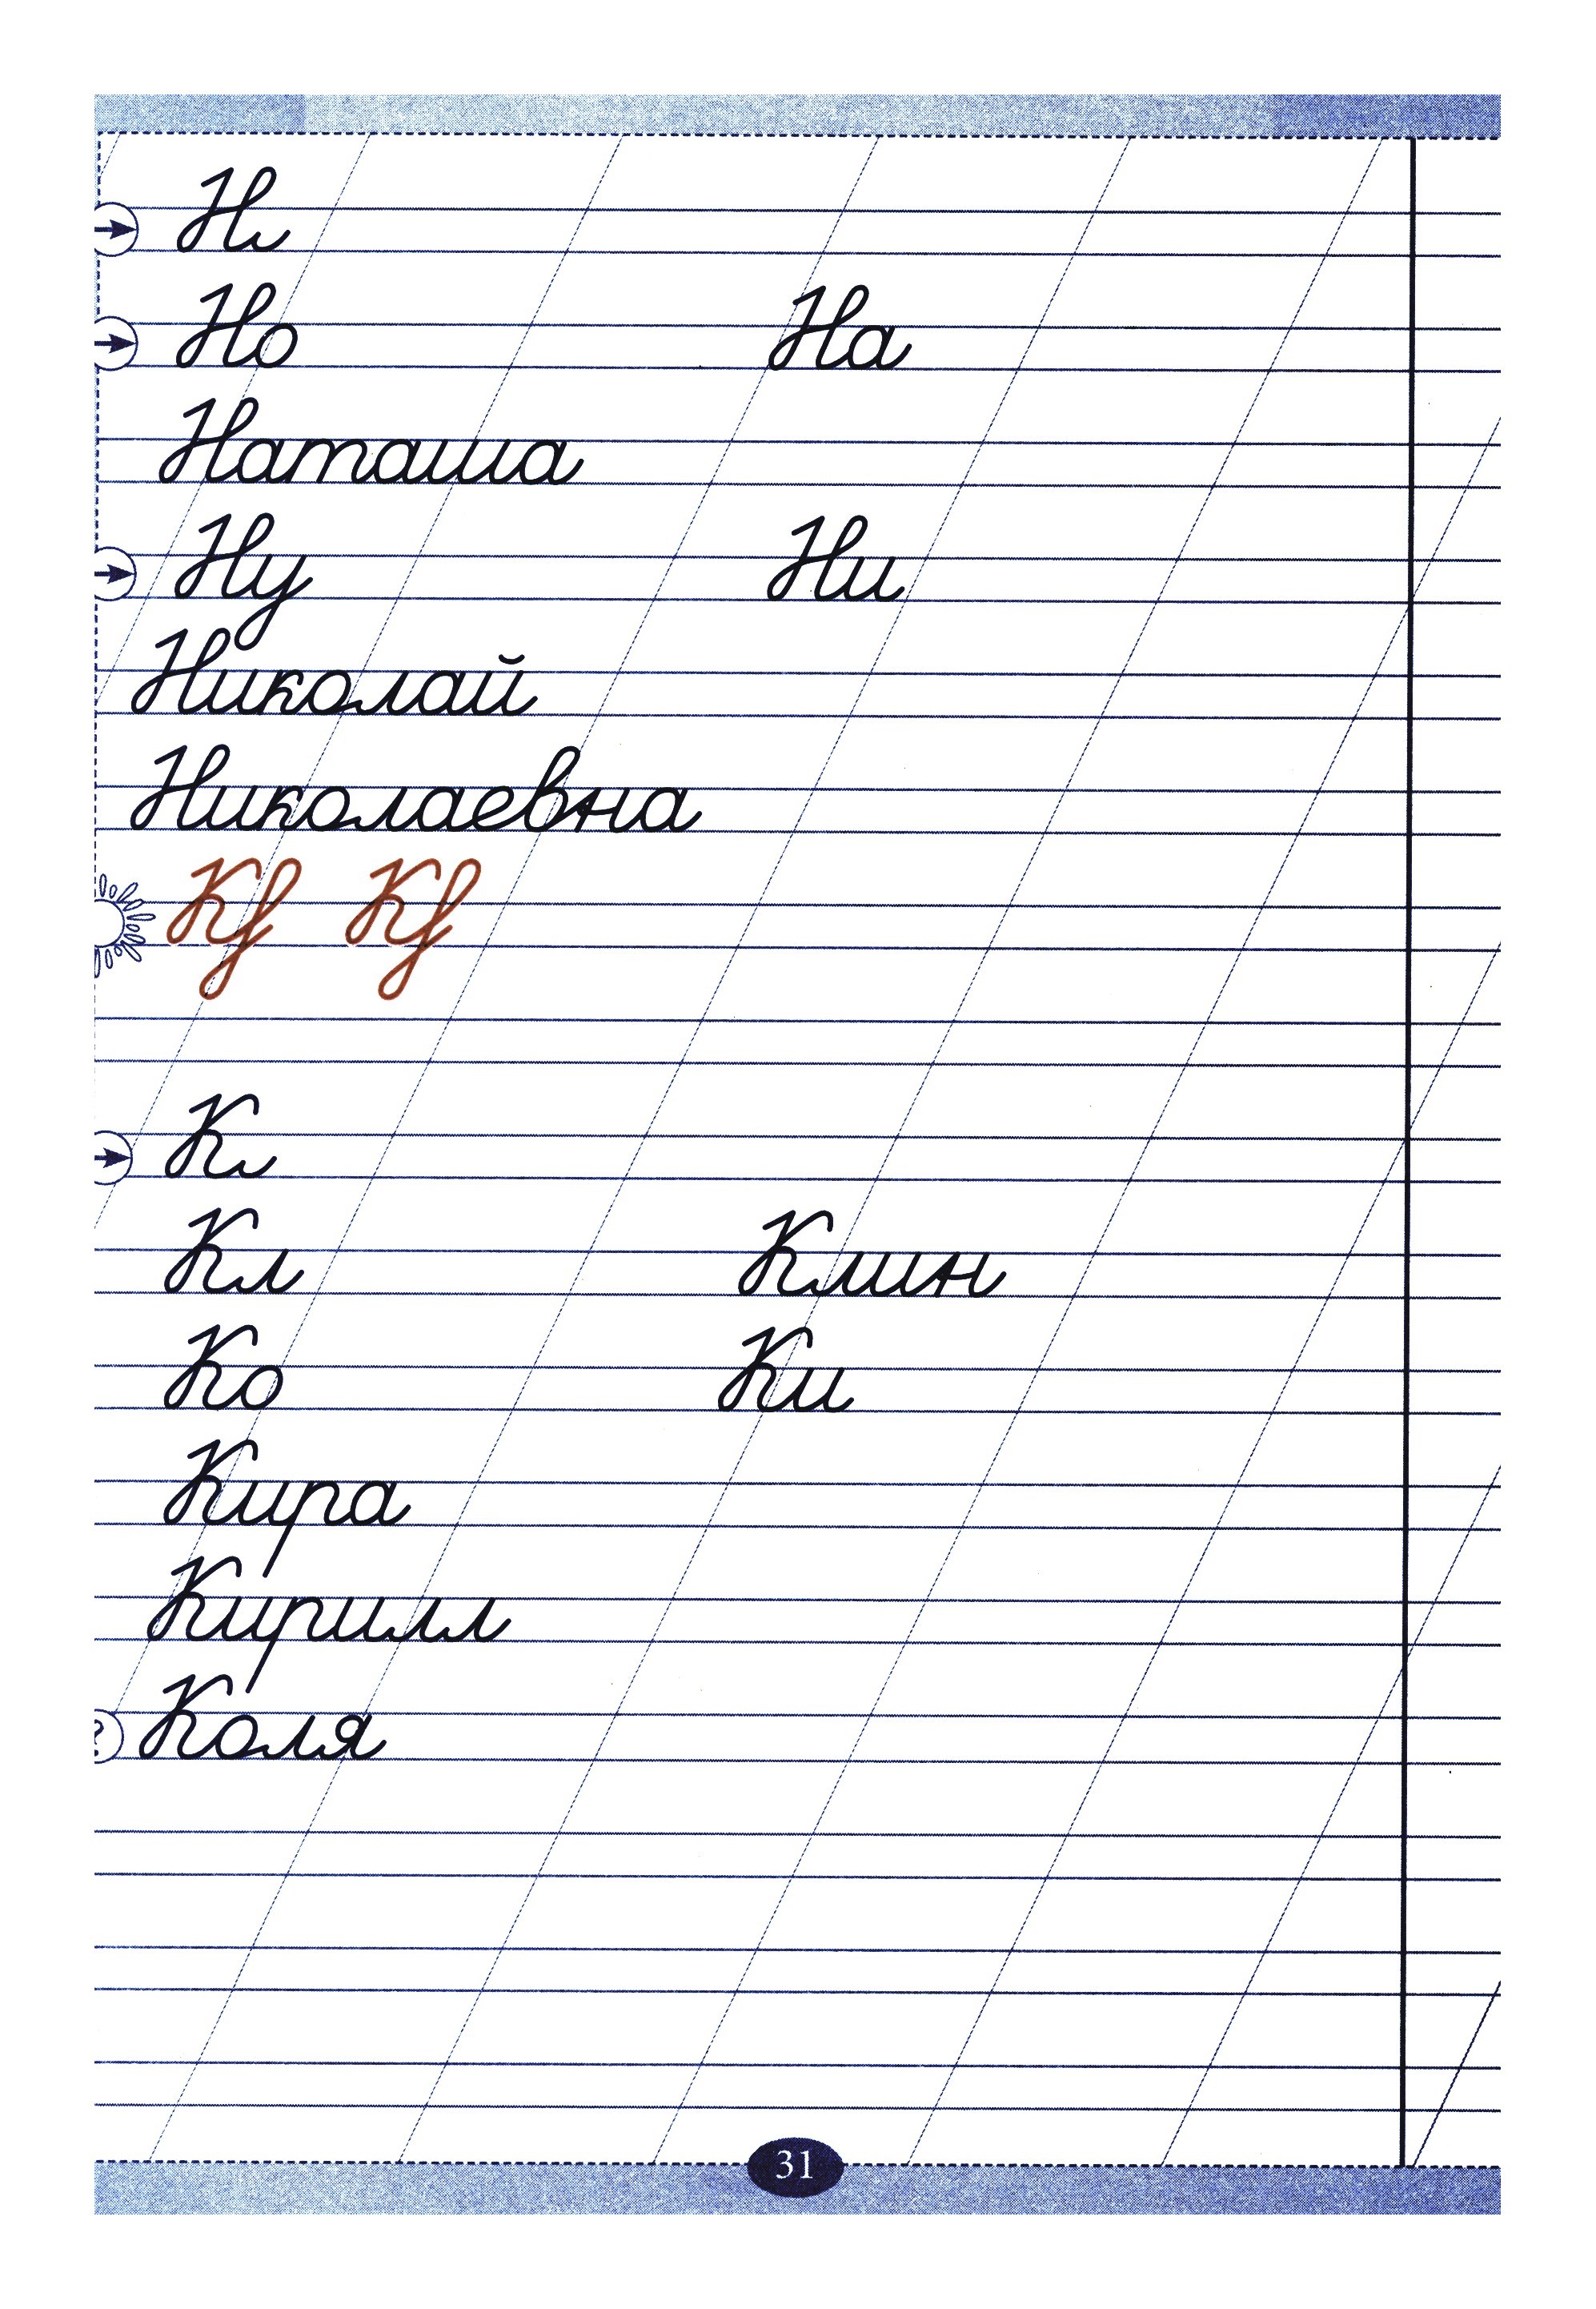 Н
Но На
Наташа
Ну Ни
Николай
Николаевна
К
Кл Клин
Ко Ки
Кира
Кирилл
? Коля
31